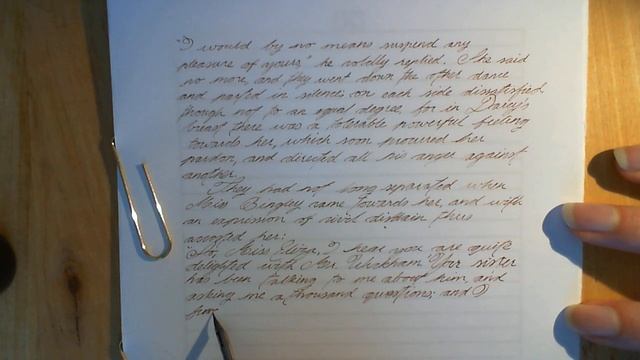 "I would by no means suspend any
pleasure of yours," he coldly replied. She said
no more, and they went down the other dance
and parted in silence; on each side dissatisfied
though not to an equal degree, for in Darcy's
breast there was a tolerable powerful feeling
towards her, which soon procured her
pardon, and directed all his anger against
another.
They had not long separated when
Miss Bingley came towards her, and with
an expression of civil disdain thus
accosted her:
"So, Miss Eliza, I hear you are quite
delighted with Mr. Wickham! Your sister
has been talking to me about him, and
asking me a thousand questions; and I
fin